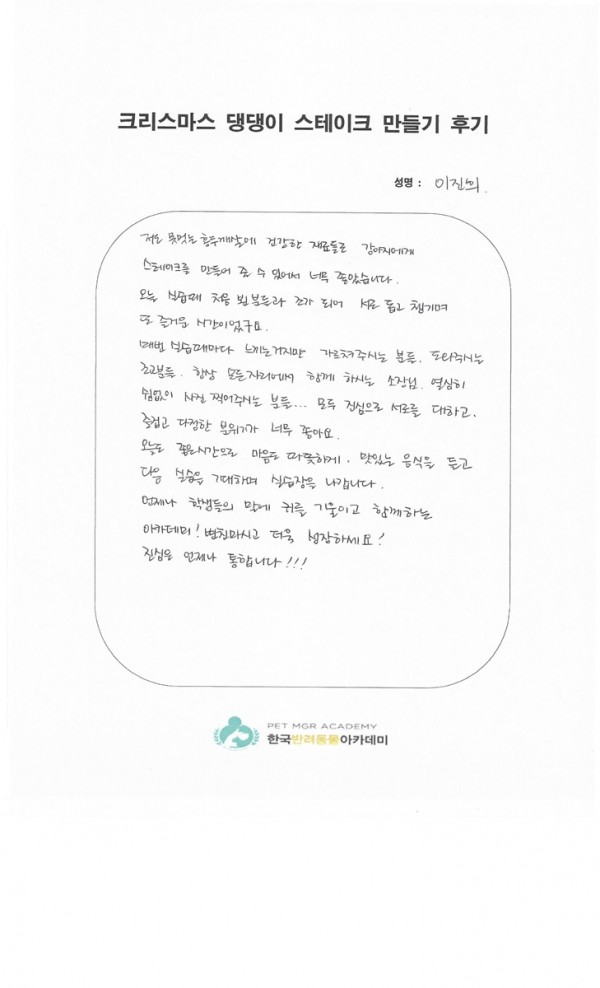 크리스마스 댕댕이 스테이크 만들기 후기
성명 : 이진희
저도 못먹는 홍두깨살에 건강한 재료들로 강아지에게
스테이크를 만들어 줄 수 있어서 너무 좋았습니다.
오늘 실습때 처음 뵌 분들과 조가 되어 서로 돕고 챙기며
또 즐거운 시간이었구요.
매번 실습때마다 느끼는거지만 가르쳐주시는 분들. 도와주시는
조교분들. 항상 모든자리에서 함께 하시는 소장님. 열심히
쉼없이 사진 찍어주시는 분들... 모두 진심으로 서로를 대하고.
즐겁고 다정한 분위기가 너무 좋아요.
오늘도 좋은시간으로 마음도 따뜻하게. 맛있는 음식을 들고
다음 실습을 기대하며 실습장을 나갑니다.
언제나 학생들의 말에 귀를 기울이고 함께하는
아카데미! 변친마시고 더욱 성장하세요!
진심은 언제나 통합니다!!!
PET MGR ACADEMY
한국반려동물아카데미